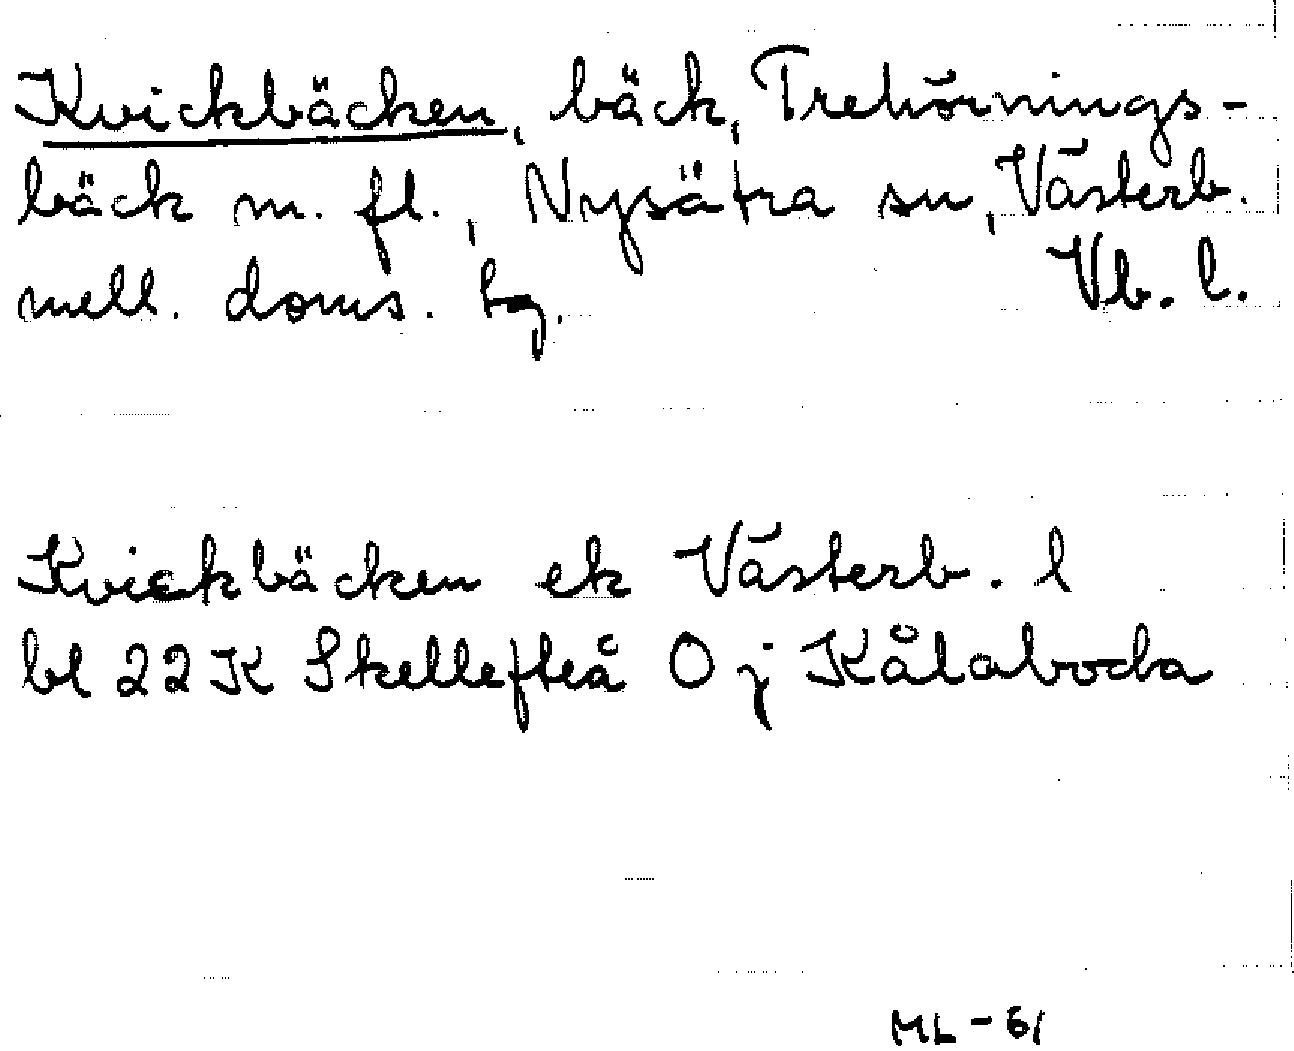 Kvickbäcken, bäck, Trehörnings-
bäck m. fl., Nysätra sn, Västerb.
mell. doms. tg. Vb. l.
Kvickbäcken ek Västerb. l
bl 22 K Skellefteå O j Kålaboda
ML - 61